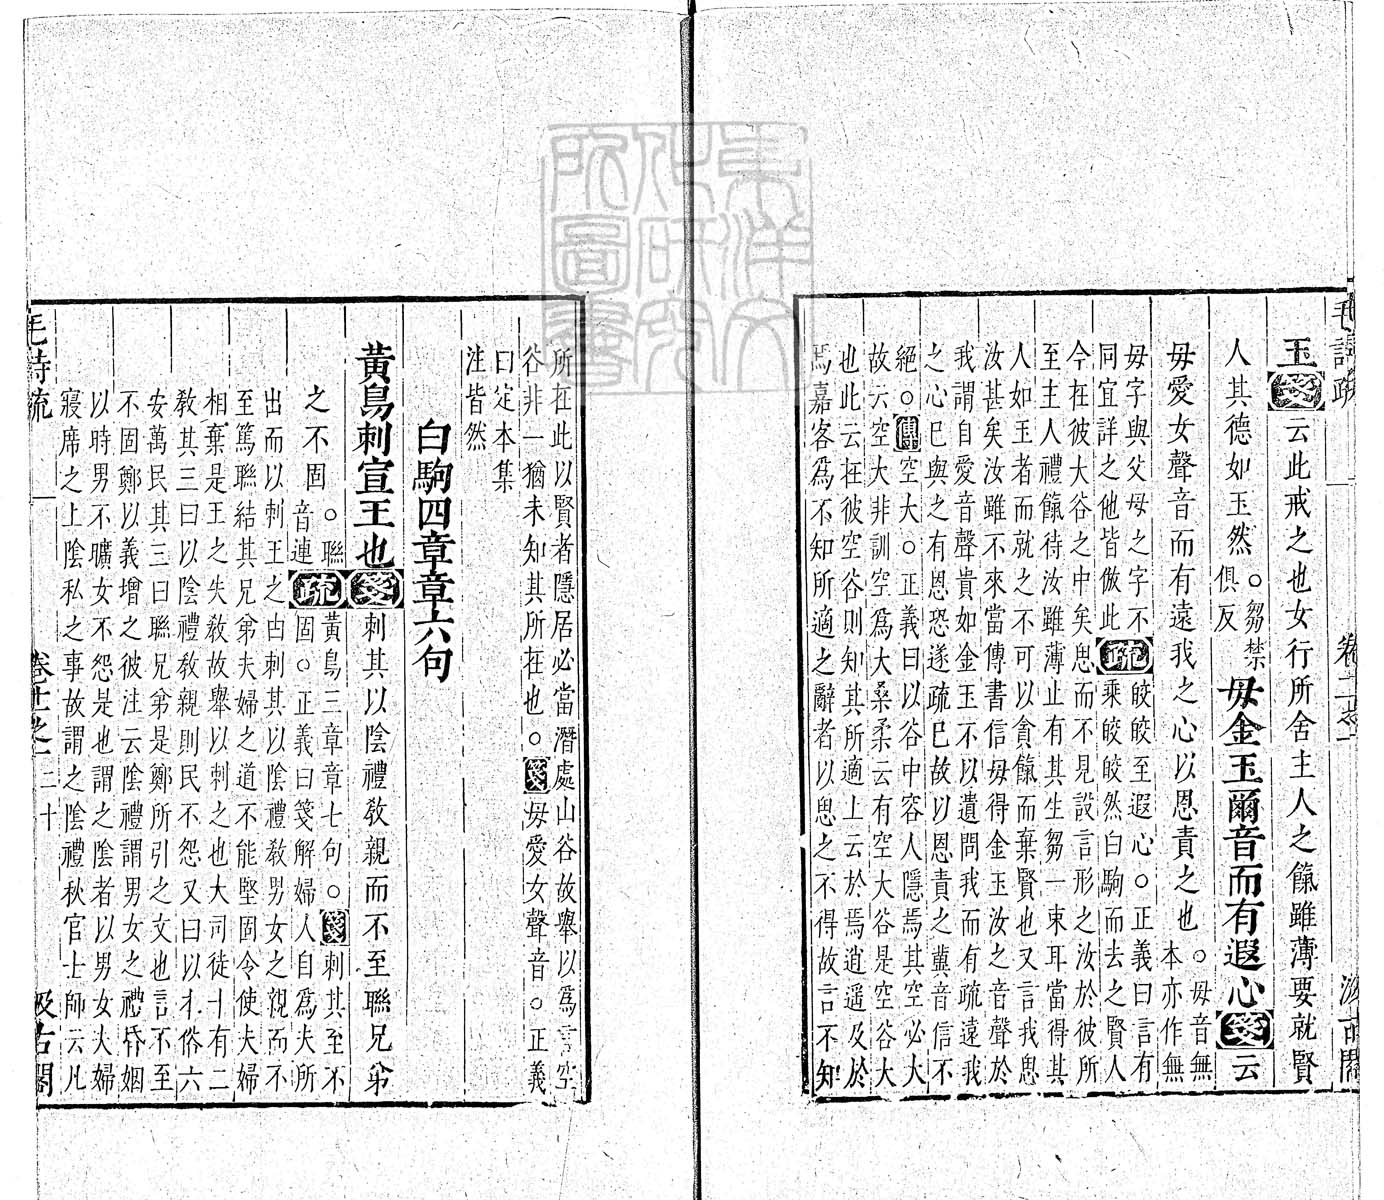 毛詩疏
卷十一之一
汲古閣
玉箋云此戒之也女行所舍主人之餼雖薄要就賢
人其德如玉然○芻禁俱反毋金玉爾音而有遐心箋云
毋愛女聲音而有遠我之心以恩責之也○毋音無本亦作無
毋字與父母之字不同宜詳之他皆倣此疏皎皎至遐心○正義曰言有
乘皎皎然白駒而去之賢人
今在彼大谷之中矣思而不見設言形之汝於彼所
至主人禮餼待汝雖薄止有其生芻一束耳當得其
人如玉者而就之不可以貪餼而棄賢也又言我思
汝甚矣汝雖不來當傳書信毋得金玉汝之音聲於
我謂自愛音聲貴如金玉不以遺問我而有疏遠我
之心巳與之有恩恐遂疏巳故以恩責之冀音信不
絕○傳空大○正義曰以谷中容人隱焉其空必大
故云空大非訓空爲大桑柔云有空大谷是空谷大
也此云在彼空谷則知其所適上云於焉逍遥及於
焉嘉客爲不知所適之辭者以思之不得故言不知
所在此以賢者隱居必當潛處山谷故舉以爲言空
谷非一猶未知其所在也○箋毋愛女聲音○正義
曰定本集
注皆然
白駒四章章六句
黃鳥刺宣王也箋刺其以陰禮敎親而不至聯兄弟
之不固○聯音連疏黃鳥三章章七句○箋刺其至不
固○正義曰箋解婦人自爲夫所
出而以刺王之由刺其以陰禮敎男女之親而不
至篤聯結其兄弟夫婦之道不能堅固令使夫婦
相棄是王之失敎故舉以刺之也大司徒十有二
敎其三曰以陰禮敎親則民不怨又曰以本俗六
安萬民其三曰聯兄弟是鄭所引之文也言不至
不固鄭以義增之彼注云陰禮謂男女之禮昏姻
以時男不曠女不怨是也謂之陰者以男女夫婦
寢席之上陰私之事故謂之陰禮秋官士師云凡
毛詩疏
卷十一之一
二十
汲古閣
東洋文化研究所圖書